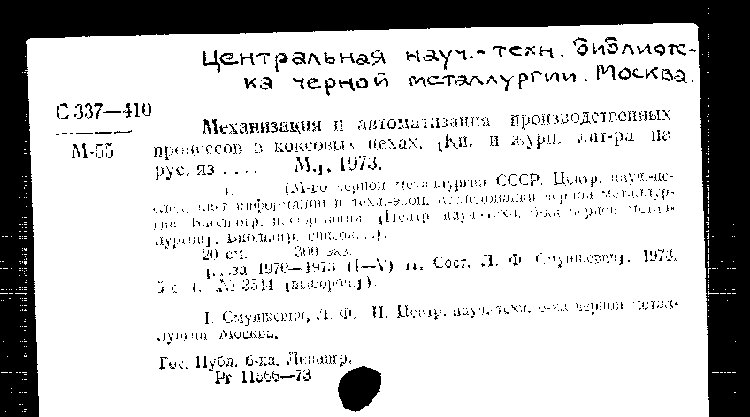 Центральная науч.-техн. библиоте-
ка черной металлургии. Москва.
С 337—410
Механизация и автоматизация производственных
М-55
процессов в коксовых цехах. [Кн. и журн. лит-ра на
рус. яз .... М.], 1973.
(М-во черной металлургии СССР. Центр. науч.-ис-
информации и техн.-экон. исследований черной металлур-
гии. (Центр. науч.-техн. б-ка черной метал-
лургии). Библиогр. список...).
20 см. 300 экз.
за 1970—1973 (I—V) Сост. Л. Ф. 1973.
5 с. № 3544
I. Л. Ф. II. Центр. науч.-техн. б-ка черной метал-
лургии Москва.
Гос. Публ. б-ка. Ленингр.
Рг 11566—73